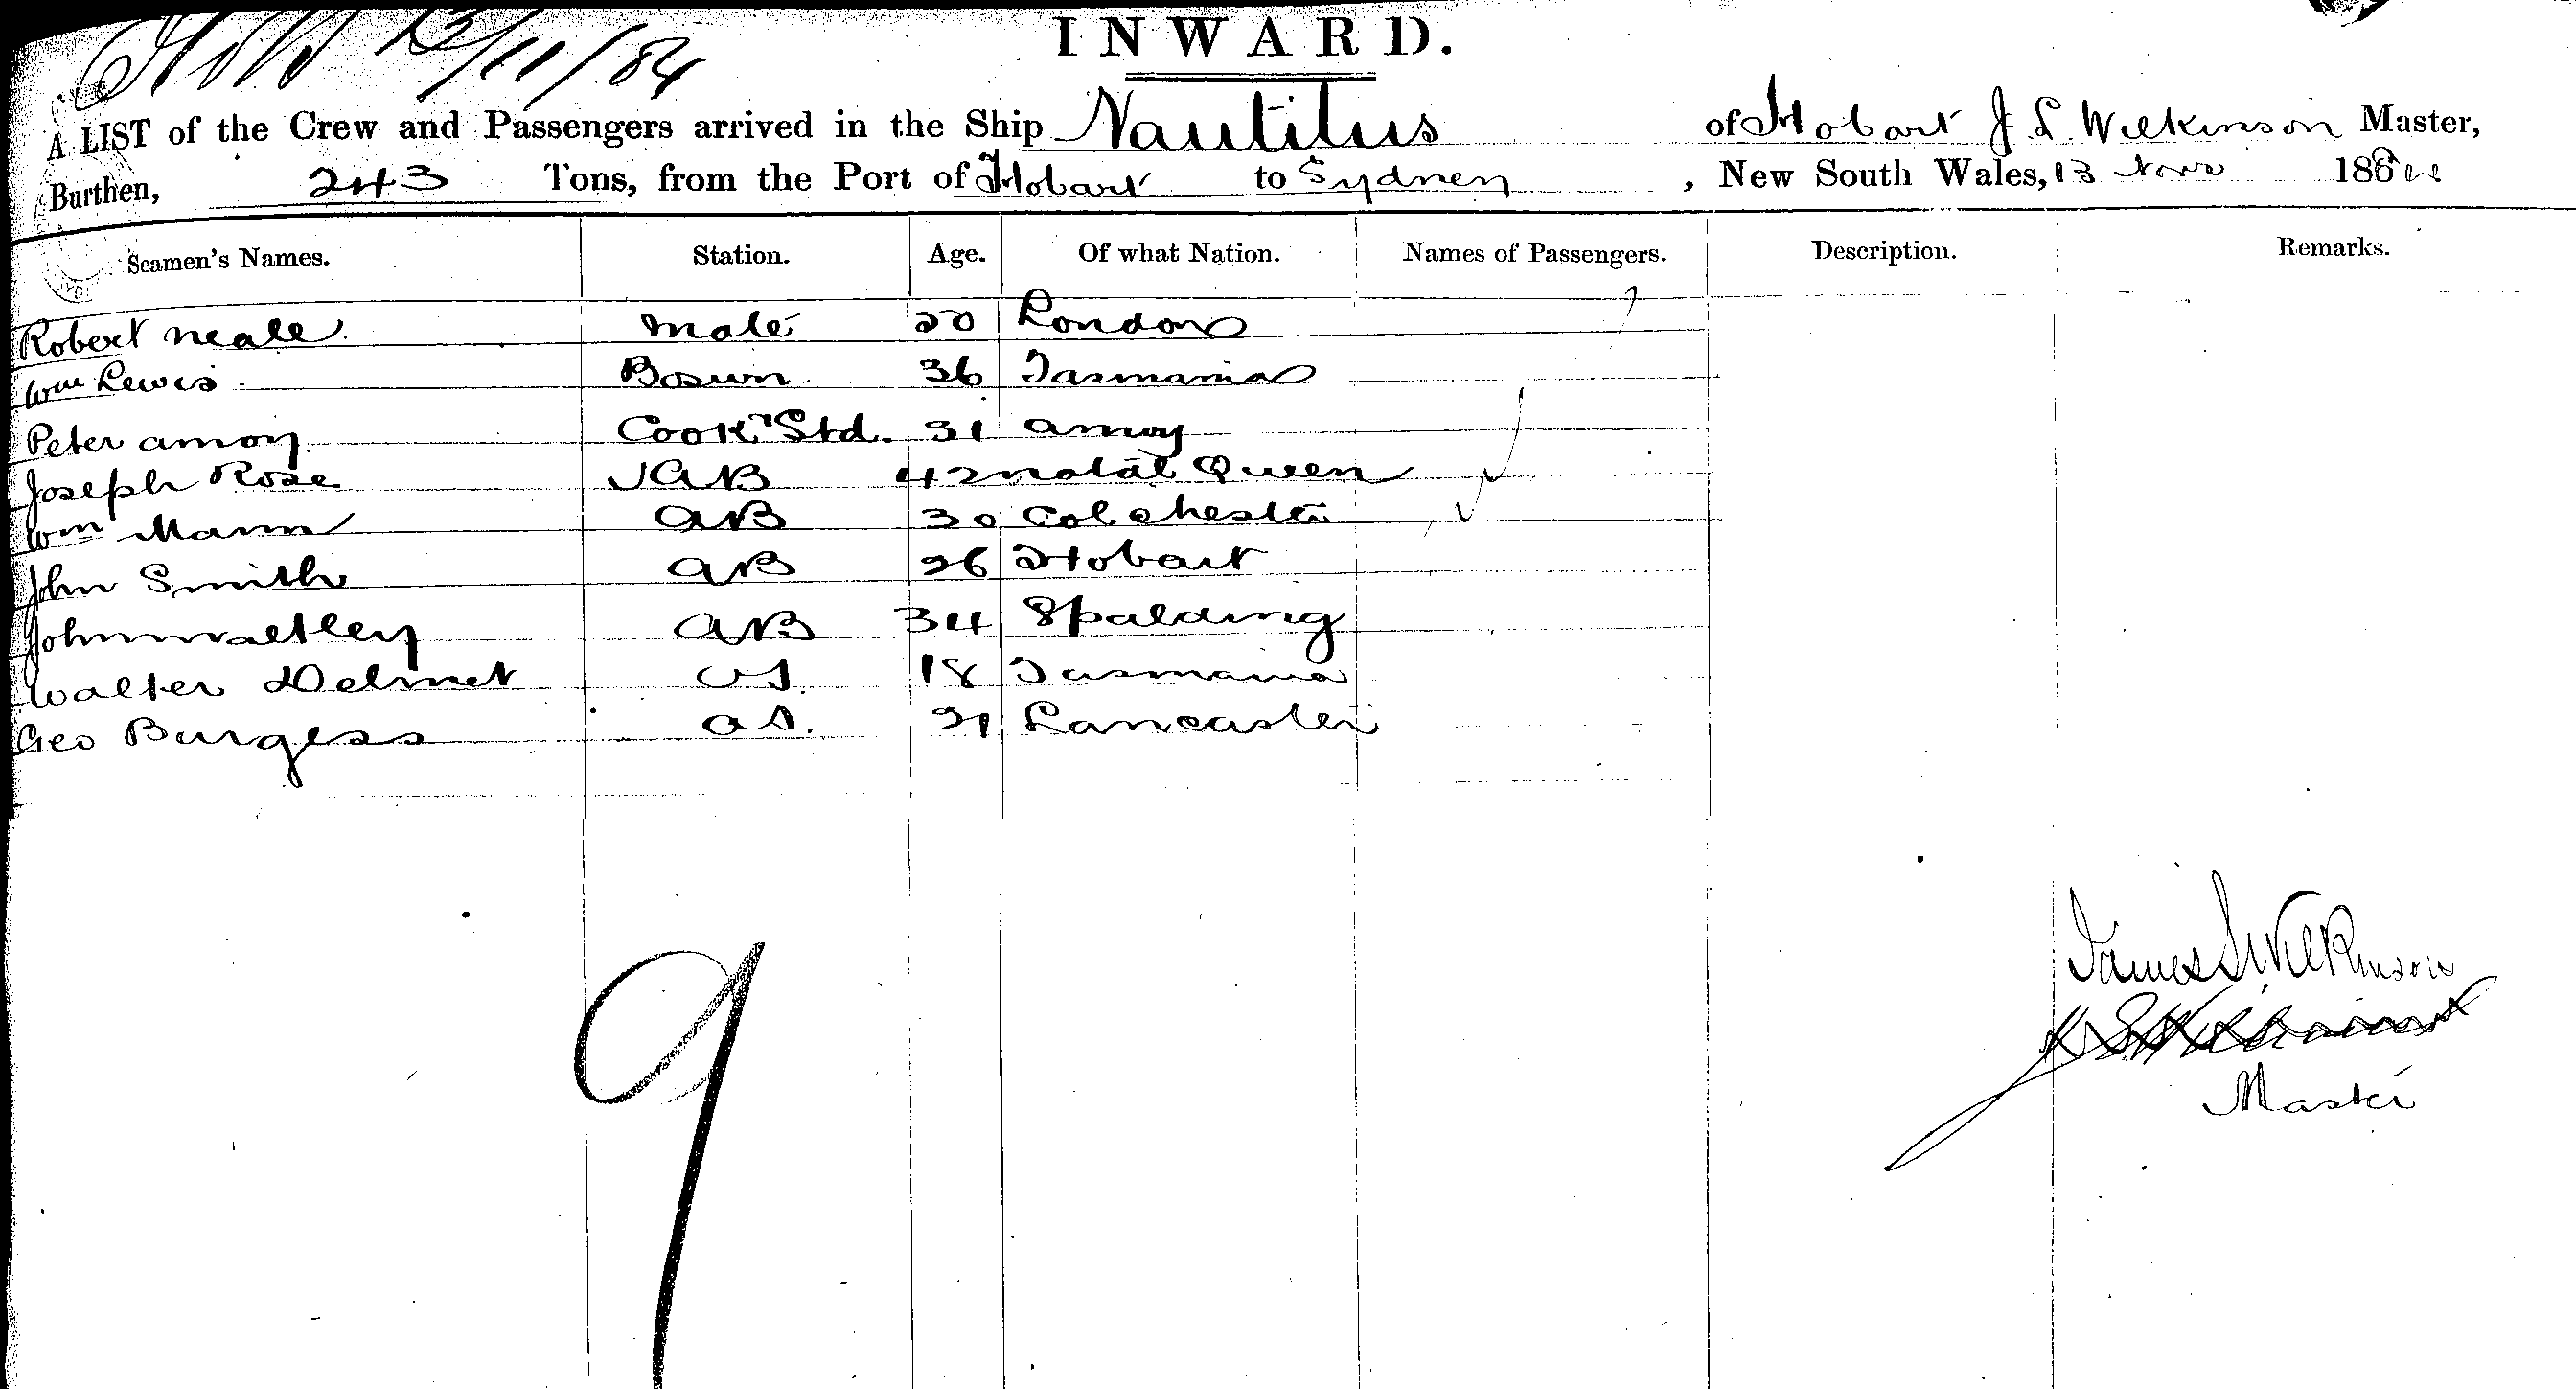 12/11/84
INWARD.
A LIST of the Crew and Passengers arrived in the Ship Nautilus of Hobart J S Wilkinson Master,
Burthen, 243 Tons, from the Port of Hobart to Sydney, New South Wales, 13 Nov 188
Seamen's Names. Station. Age. Of what Nation. Names of Passengers. Description. Remarks.
Robert Neale Mate 20 London
Wm Lewis Bosun 36 Tasmania
Peter Amoy Cook Std. 31 Amoy
Joseph Rose AB 42 Natal Queen
Wm Mann AB 30 Colchester
John Smith AB 26 Hobart
John AB 34 Spalding
Walter Delmet OS 18 Tasmania
Geo Burgess OS. 21 Lancaster
9
James S Wilkinson
Master